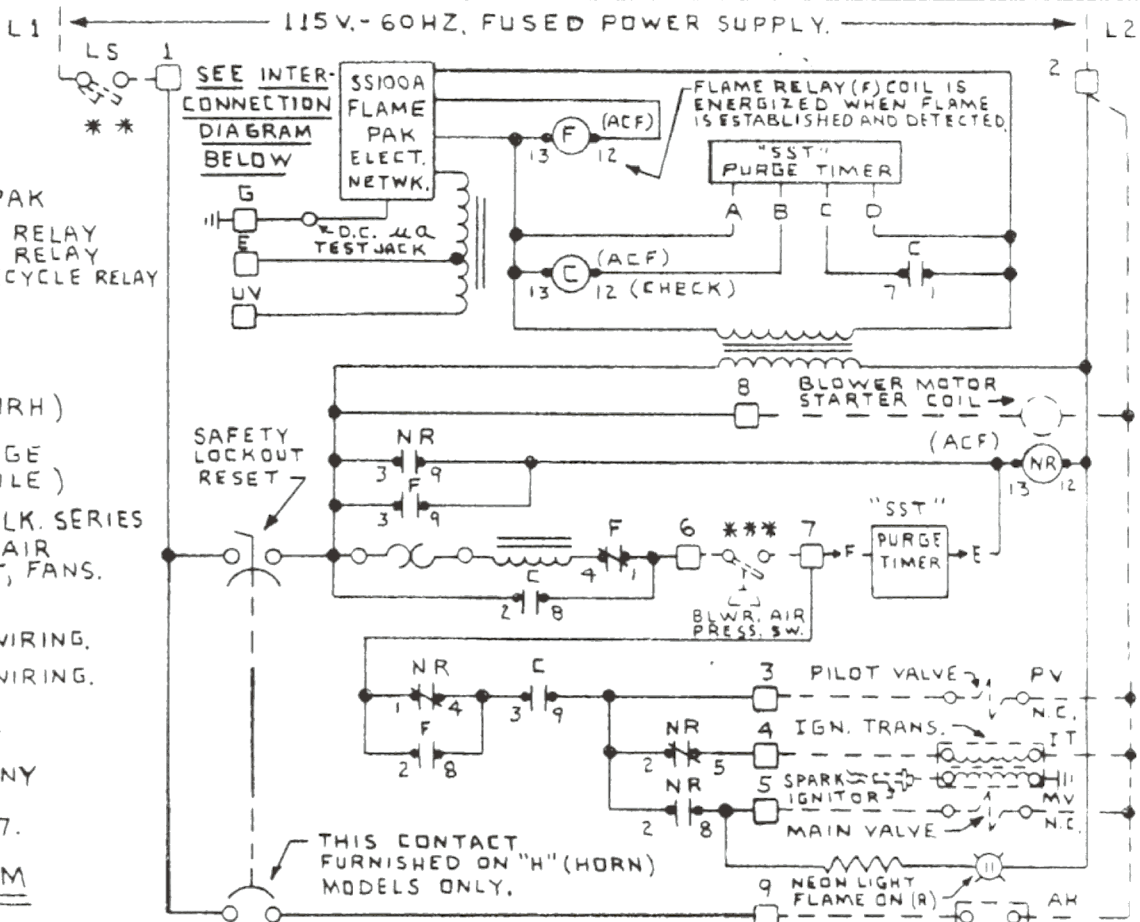 L1
115V.- 60HZ, FUSED POWER SUPPLY.
L2
LS
1
2
* *
SEE INTER-
CONNECTION
DIAGRAM
BELOW
SS100A
FLAME
PAK
ELECT.
NETWK.
FLAME RELAY (F) COIL IS
ENERGIZED WHEN FLAME
IS ESTABLISHED AND DETECTED.
(ACF)
F
13
12
"SST"
PURGE TIMER
A B C D
PAK
RELAY
RELAY
CYCLE RELAY
G
D.C. µa
TEST JACK
E
UV
C
(ACF)
13
12 (CHECK)
C
7
1
8
BLOWER MOTOR
STARTER COIL
(ACF)
NR
13
12
SAFETY
LOCKOUT
RESET
NR
3
9
F
3
9
LK. SERIES
AIR
FANS.
F
4
1
6
* * *
7
F
"SST"
PURGE
TIMER
E
C
2
8
BLWR. AIR
PRESS. SW.
WIRING.
WIRING.
NR
1
4
C
3
9
F
2
8
3
PILOT VALVE
PV
N.C.
NR
2
5
4
IGN. TRANS.
IT
NR
2
8
5
SPARK
IGNITOR
MV
N.C.
MAIN VALVE
7.
THIS CONTACT
FURNISHED ON "H" (HORN)
MODELS ONLY.
9
NEON LIGHT
FLAME ON (R)
AH